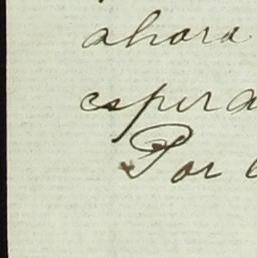 ahora
espera
Por